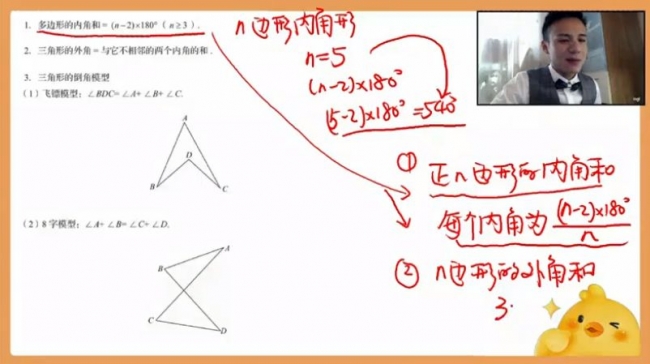 1. 多边形的内角和=(n-2)×180°(n≥3).
2. 三角形的外角=与它不相邻的两个内角的和.
3. 三角形的倒角模型
(1)飞镖模型:∠BDC=∠A+∠B+∠C.
A
D
B
C
(2)8字模型:∠A+∠B=∠C+∠D.
A
B
C
D
n边形内角形
n=5
(n-2)×180°
(5-2)×180°=540°
① 正n边形的内角和
每个内角为(n-2)×180°
n
② n边形的外角和
3